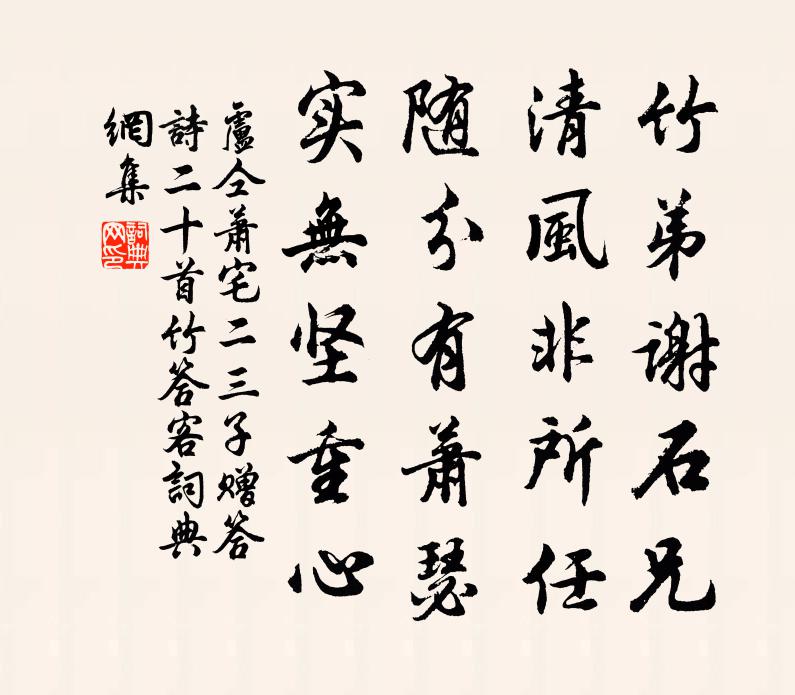 竹弟謝石兄
清風非所任
随分有蕭瑟
实無坚重心
盧仝萧宅二三子赠答
詩二十首竹答客詞典
網集
詞典网印